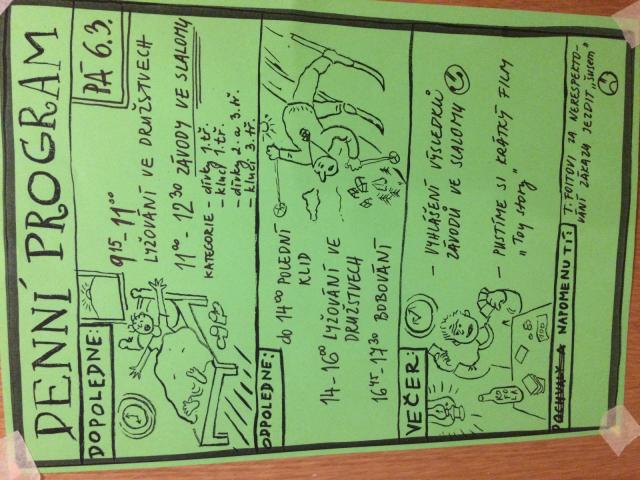 DENNÍ PROGRAM
PÁ 6.3.
DOPOLEDNE:
9¹⁵-11⁰⁰
LYŽOVÁNÍ VE DRUŽSTVECH
11⁰⁰ - 12³⁰ ZÁVODY VE SLALOMU
KATEGORIE - dívky 1.tř.
- kluci 1.tř.
- dívky 2. a 3.tř.
- kluci 3.tř.
ODPOLEDNE:
do 14⁰⁰ POLEDNÍ
KLID
14-16⁰⁰ LYŽOVÁNÍ VE
DRUŽSTVECH
16⁴⁵-17³⁰ BOBOVÁNÍ
VEČER:
- VYHLÁŠENÍ VÝSLEDKŮ
ZÁVODŮ VE SLALOMU
- PUSTÍME SI KRÁTKÝ FILM
"Toy story"
KO
FO
LA
POCHVALY A NAPOMENUTÍ:
T. FOITOVI ZA NERESPEKTO-
VÁNÍ ZÁKAZU JEZDIT "šusem"